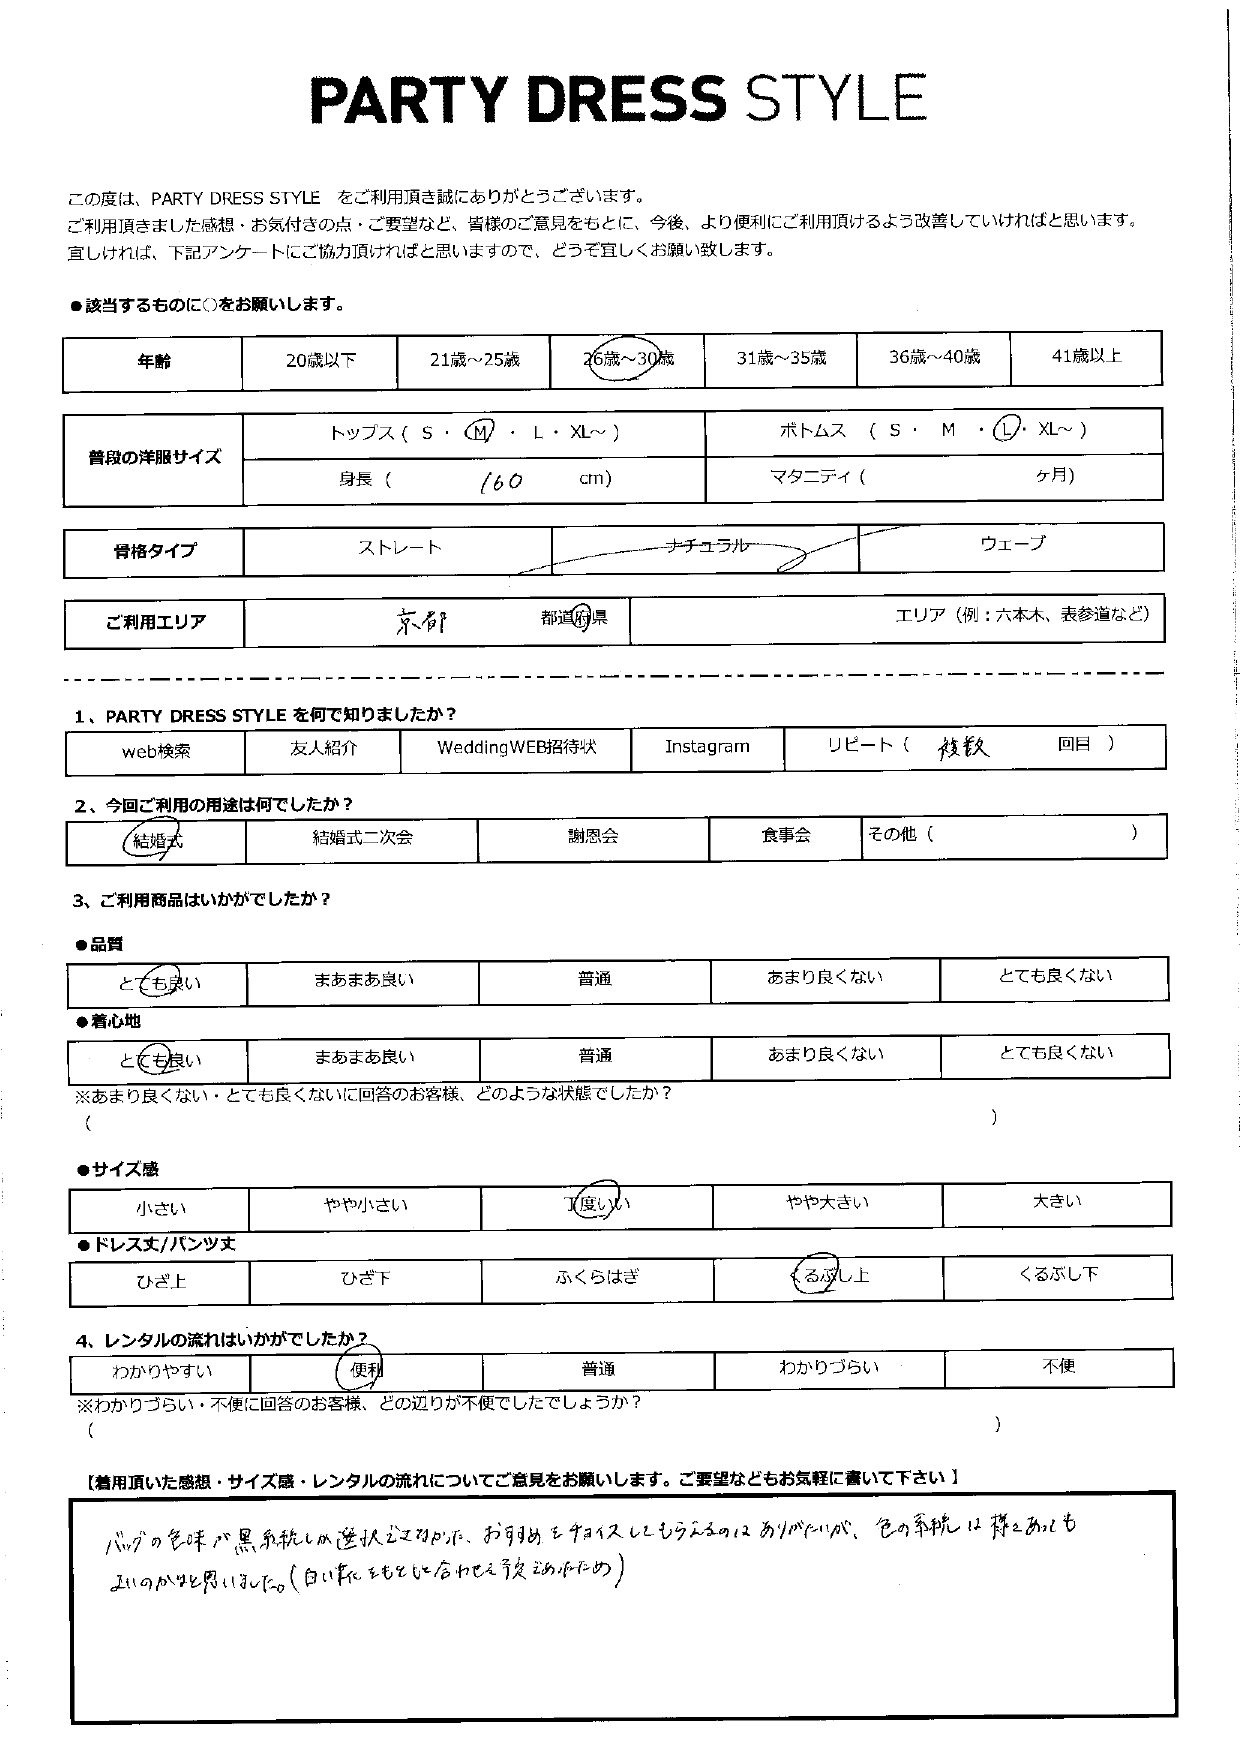 PARTY DRESS STYLE
この度は、PARTY DRESS STYLE をご利用頂き誠にありがとうございます。
ご利用頂きました感想・お気付きの点・ご要望など、皆様のご意見をもとに、今後、より便利にご利用頂けるよう改善していければと思います。
宜しければ、下記アンケートにご協力頂ければと思いますので、どうぞ宜しくお願い致します。
●該当するものに○をお願いします。
年齢 20歳以下 21歳～25歳 26歳～30歳 31歳～35歳 36歳～40歳 41歳以上
普段の洋服サイズ トップス ( S ・ M ・ L ・ XL～ ) ボトムス ( S ・ M ・ L ・ XL～ )
身長 ( 160 cm) マタニティ ( ヶ月)
骨格タイプ ストレート ナチュラル ウェーブ
ご利用エリア 京都 都道府県 エリア（例：六本木、表参道など）
1、PARTY DRESS STYLE を何で知りましたか？
web検索 友人紹介 WeddingWEB招待状 Instagram リピート ( 複数 回目 )
2、今回ご利用の用途は何でしたか？
結婚式 結婚式二次会 謝恩会 食事会 その他 ( )
3、ご利用商品はいかがでしたか？
●品質
とても良い まあまあ良い 普通 あまり良くない とても良くない
●着心地
とても良い まあまあ良い 普通 あまり良くない とても良くない
※あまり良くない・とても良くないに回答のお客様、どのような状態でしたか？
( )
●サイズ感
小さい やや小さい 丁度いい やや大きい 大きい
●ドレス丈/パンツ丈
ひざ上 ひざ下 ふくらはぎ くるぶし上 くるぶし下
4、レンタルの流れはいかがでしたか？
わかりやすい 便利 普通 わかりづらい 不便
※わかりづらい・不便に回答のお客様、どの辺りが不便でしたでしょうか？
( )
【着用頂いた感想・サイズ感・レンタルの流れについてご意見をお願いします。ご要望などもお気軽に書いて下さい 】
バッグの色味が黒系統しか選択できなかった、おすすめをチョイスしてもらえるのはありがたいが、色の系統は様々あっても
よいのかなと思いました。(白い靴をもとに合わせる予定だったため)